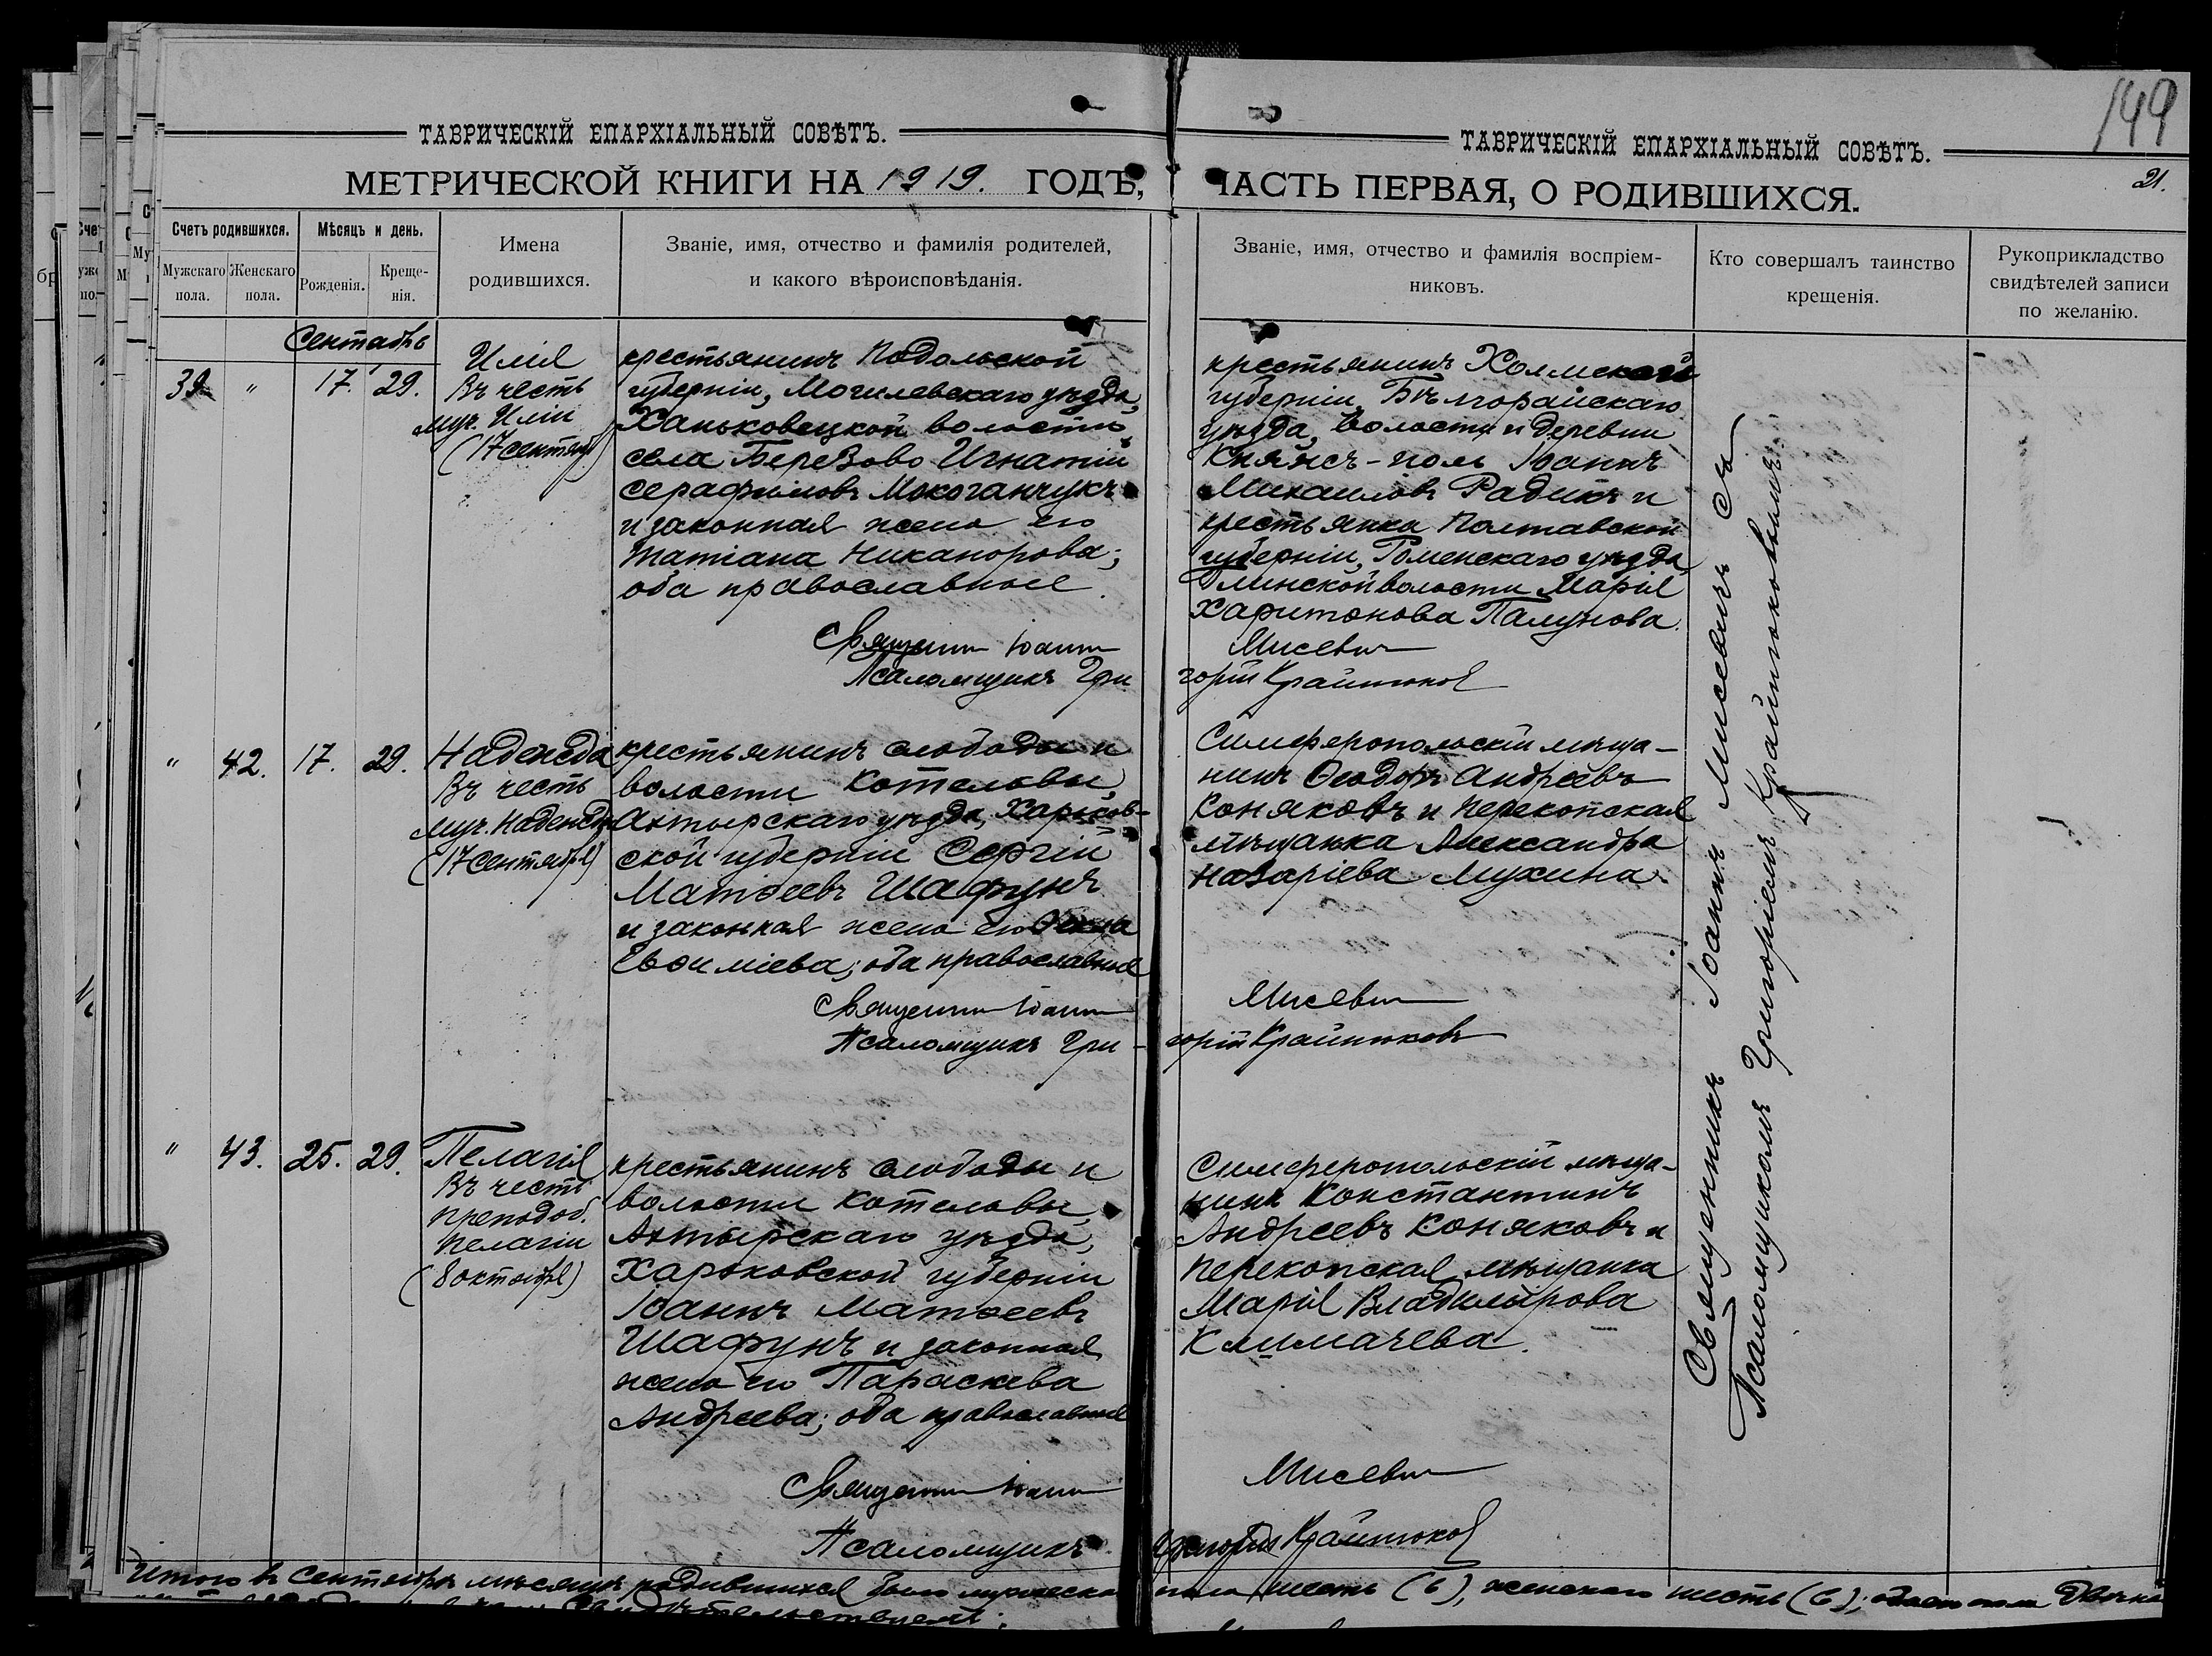 149
21.
ТАВРИЧЕСКІЙ ЕПАРХІАЛЬНЫЙ СОВѢТЪ.
МЕТРИЧЕСКОЙ КНИГИ НА 1919. ГОДЪ,
ТАВРИЧЕСКІЙ ЕПАРХІАЛЬНЫЙ СОВѢТЪ.
ЧАСТЬ ПЕРВАЯ, О РОДИВШИХСЯ.
Счетъ родившихся.
Мужскаго пола.
Женскаго пола.
Мѣсяцъ и день.
Рожденія.
Креще-
нія.
Имена
родившихся.
Званіе, имя, отчество и фамилія родителей,
и какого вѣроисповѣданія.
Званіе, имя, отчество и фамилія воспріем-
никовъ.
Кто совершалъ таинство
крещенія.
Рукоприкладство
свидѣтелей записи
по желанію.
Сентябрь
39. " 17. 29.
Илія
Въ честь
муч. Иліи
(17 сентября)
крестьянинъ Подольской
губерніи, Могилевскаго уѣзда,
Ханьковецкой волости,
села Березово Игнатій
Серафимовъ Мокоганчукъ
и законная жена его
Татіана Никанорова;
оба православные.
Священникъ Іоаннъ
Мисевичъ
Псаломщикъ Гри
горій Крайнюковъ
крестьянинъ Холмской
губерніи, Бѣлгорайскаго
уѣзда, волости и деревни
Княжъ-поль Іоаннъ
Михаиловъ Радикъ и
крестьянка Полтавской
губерніи, Роменскаго уѣзда
Глинской волости Марія
Харитонова Палунова.
" 42. 17. 29.
Надежда
Въ честь
муч. Надежды
(17 сентября)
крестьянинъ слободы и
волости Котельвы,
Ахтырскаго уѣзда, Харьков-
ской губерніи Сергій
Матѳеевъ Шафунъ
и законная жена его
Евѳиміева; оба православные
Священникъ Іоаннъ
Мисевичъ
Псаломщикъ Гри-
горій Крайнюковъ
Симферопольскій мѣща-
нинъ Ѳеодоръ Андреевъ
Коняковъ и Перекопская
мѣщанка Александра
Назаріева Мухина.
" 43. 25. 29.
Пелагія
Въ честь
преподоб.
Пелагіи
(8 октября)
крестьянинъ слободы и
волости Котельвы,
Ахтырскаго уѣзда,
Харьковской губерніи
Іоаннъ Матѳеевъ
Шафунъ и законная
жена его Параскева
Андреева; оба православные
Священникъ Іоаннъ
Мисевичъ
Псаломщикъ
Григорій Крайнюковъ
Симферопольскій мѣща-
нинъ Константинъ
Андреевъ Коняковъ и
Перекопская мѣщанка
Марія Владимірова
Климачева.
Священникъ Іоаннъ Мисевичъ съ
Псаломщикомъ Григоріемъ Крайнюковымъ
Итого въ Сентябрѣ мѣсяцѣ родившихся было мужеска пола шесть (6), женскаго шесть (6); обоего пола